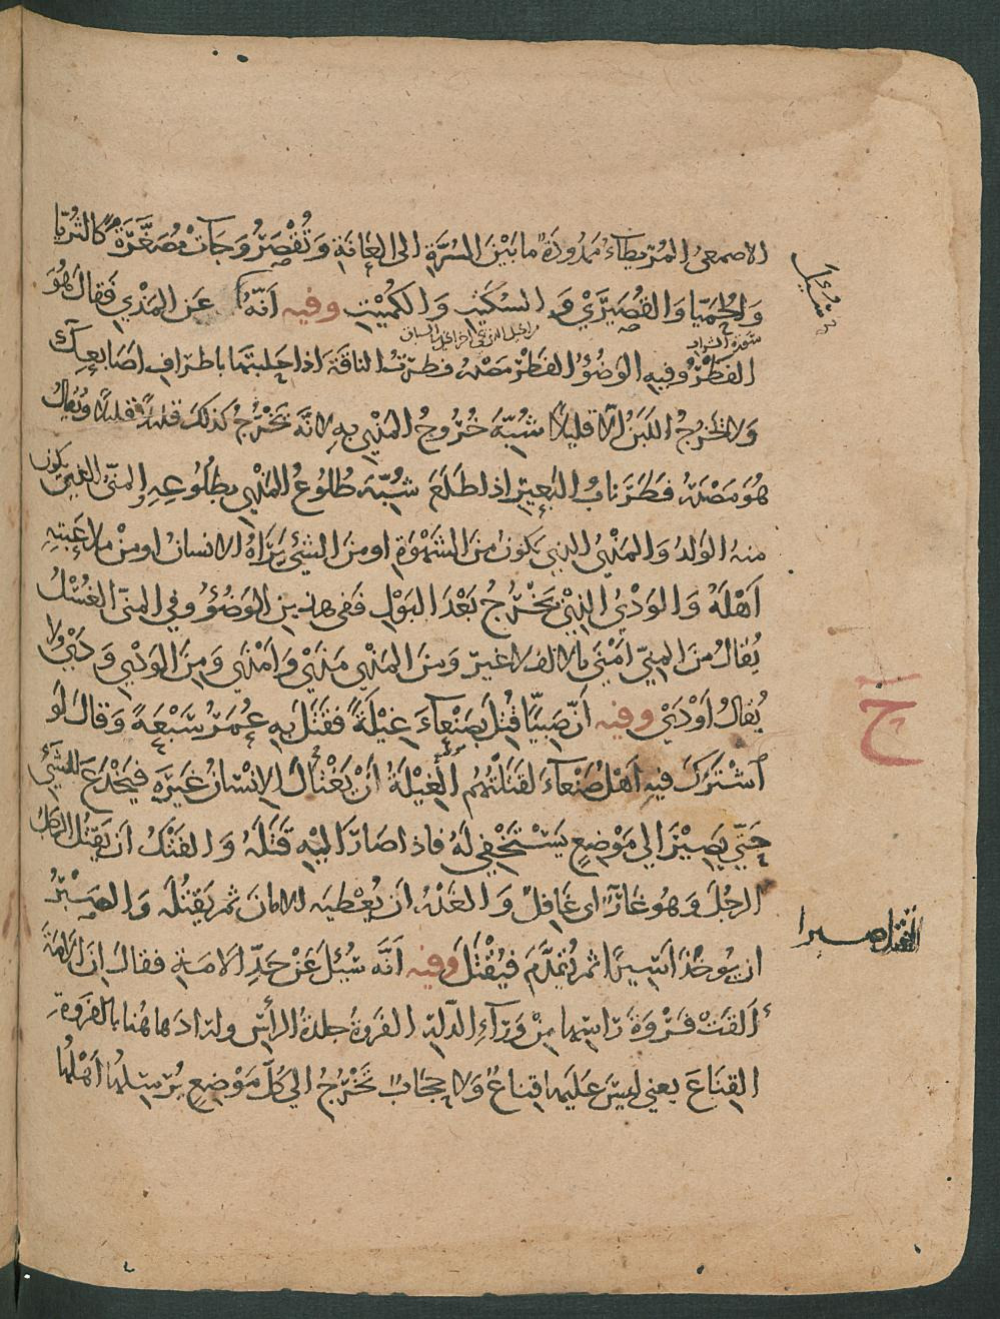 الاصمعيُ المُرَيطآءُ مَمْدُودَةٌ مابَيْنَ السُّرَّةِ الى العَانَةِ وَتُقْصَرُ وَجَآتْ مُصَغَّرَةً كالثُرَيّا
وَالحُمَيّا وَالقُصَيْرَيْ وَ السُكَيْتِ وَالكُمَيْتِ وفيه اَنّهُ سُئِلَ عَن المَذْيِ فَقالَ هُوَ
الفَطْرُ وفيه الوَضُوُ الفَطْرُ مَصْدرُ فطَرتُ الناقَةَ اذا حَلَبتَها باطرَافِ اصَابعِكَ
وَلا يَخْرجُ اللبَنُ اِلّا قليلًا شُبِّهَ خُرُوجُ المَذْيِ بهِ لانّه يَخْرُجُ كذلكَ قليلًا قليلًا ويُقالُ
هُوَ مَصْدَرُ فَطَرَ نابُ البَعِيْرِ اذا طَلَعَ شُبّهَ طُلُوعُ المَذْيِ بطُلُوعِهِ المنيّ الذي يكون
منهُ الوَلَدُ وَالمَذْيُ الذي يَكونُ مِنَ الشَهْوَةِ اومنَ الشيْءِ يَرَاهُ الانسانُ اومِنْ مُلاعَبَتِهِ
اَهْلَهُ وَالوَدْيُ الذِيْ يَخْرُجُ بَعْدَ البَوْلِ فَفي هذينِ الوَضُوُ وفي المنيّ الغُسْلُ
يُقالُ منَ المنيّ اَمْنَى بالالف لاغيرَ وَمنَ المَذْيِ مَذَيْ وَاَمْذَي وَمِنَ الوَدْيِ وَدَيْ وَلا
يُقالُ اَوْدَيْ وفيه اَنّ صَبِيًّا قُتلَ بصَنْعآءَ غِيْلَةً فقَتَلَ بهِ عُمَرُ سَبْعَةً وَقالَ لَو
اَشْتَرَكَ فيهِ اَهْلُ صَنْعآءَ لقَتَلْتُهُم الغِيْلَةُ اَنْ يَغْتَالَ الاِنْسَانُ غَيْرَهِ فيَخْدَعَ للشَيْءِ
حَتّي يَصِيْرَ الي مَوْضعٍ يَسْتَخْفِي لَهُ فاذا صَارَ اليْهِ قَتَلَهُ وَالفَتْكُ اَن يَقتُلَ الرجلُ
الرجُلَ وَهُو غارٌّ اى غَافِلٌ وَالغَدْرُ ان يُعْطيَه الامانَ ثم يَقتُلَه وَالصَبْرُ
ان يُوخَذَ اَسِيرًا ثم يُقدَّمَ فيُقْتَلَ وفيه اَنّه سُئِلَ عَنْ حَدِّ الامَةِ فقالَ اِنّ الامَةَ
اَلقَتْ فَرْوَةَ رَاسِها مِنْ وَرَآءِ الدّارِ الفَروَةُ جلدَةُ الرأسِ وارَادَ هاهُنا بالفَروَةِ
القِنَاعَ يعني ليسَ عَليَها قناعٌ وَلا حجَابٌ تَخْرُجُ الي كلّ مَوْضعٍ يُرْسِلها اَهْلُها
ح
القتل صبرا